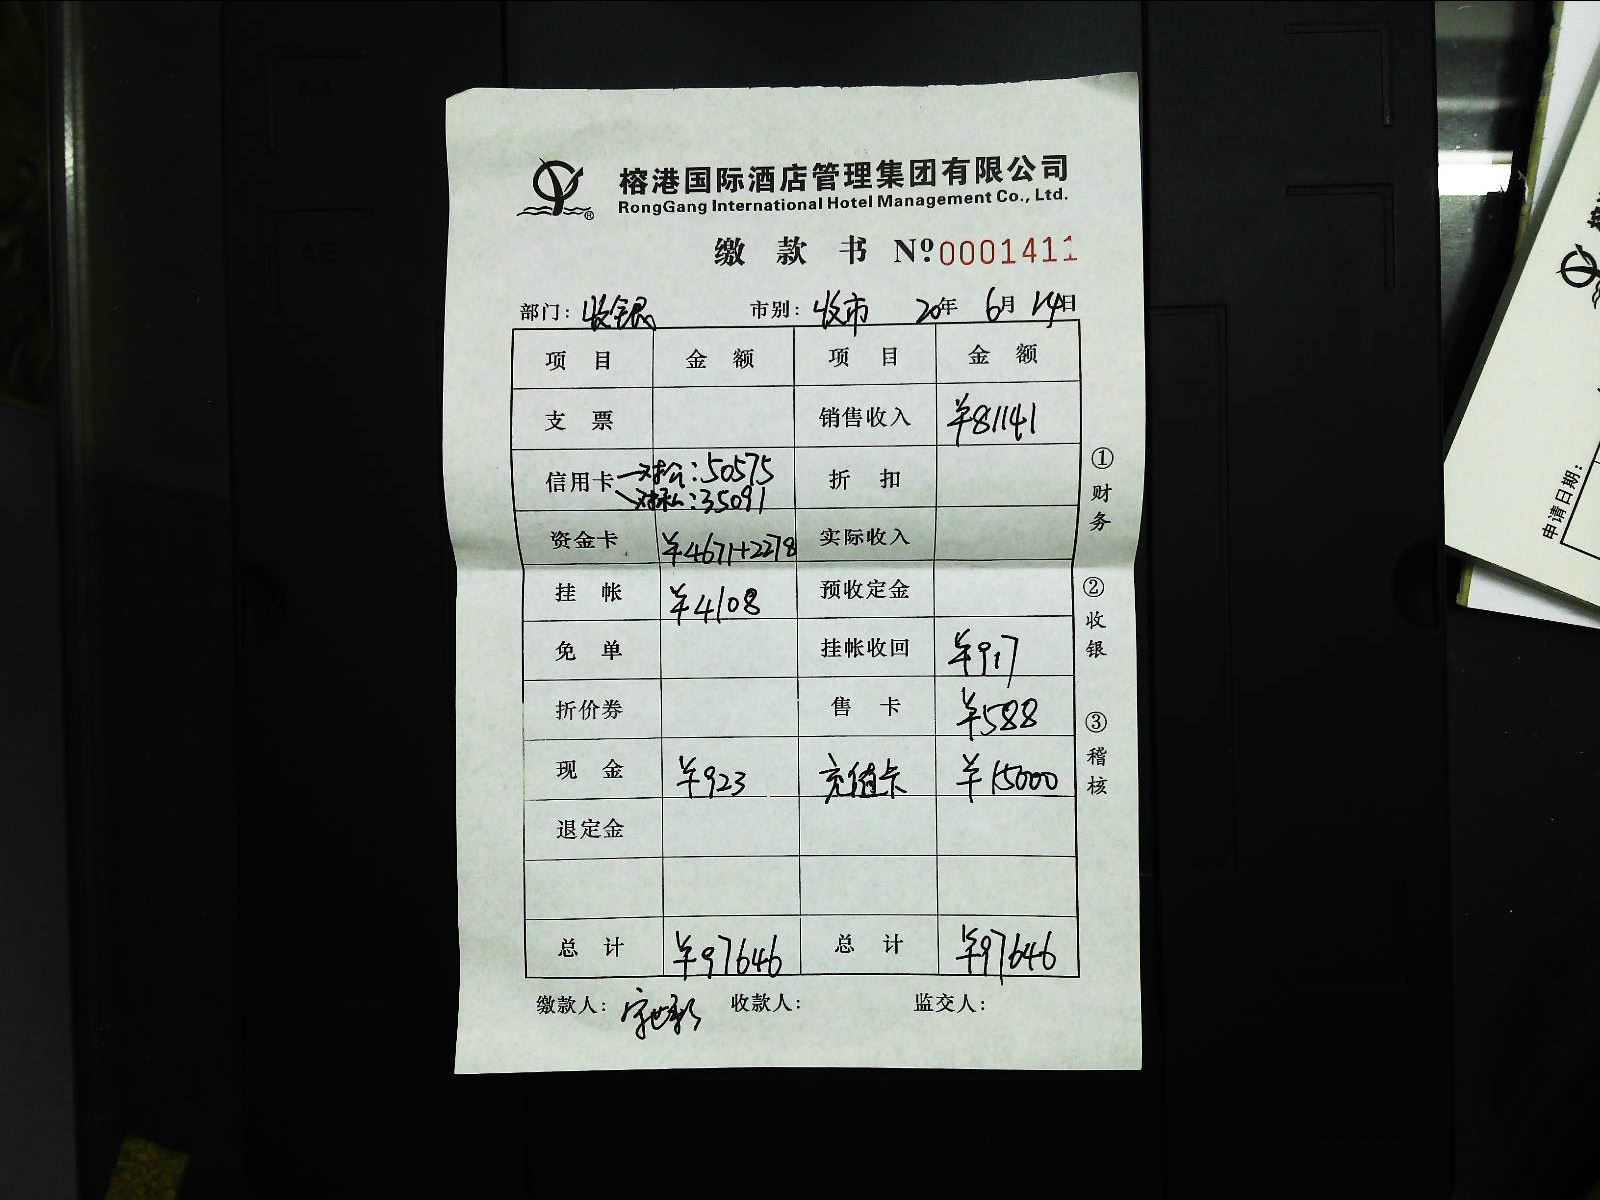 榕港国际酒店管理集团有限公司
RongGang International Hotel Management Co., Ltd.
缴 款 书 Nº 0001411
部门: 收银 市别: 收市 20年 6月 14日
项 目 金 额 项 目 金 额
支 票 销售收入 ¥81141
信用卡 对公:50575 折 扣
对私:35091
资金卡 ¥4671+2278 实际收入
挂 帐 ¥4108 预收定金
免 单 挂帐收回 ¥917
折价券 售 卡 ¥588
现 金 ¥923 充值卡 ¥15000
退定金
总 计 ¥97646 总 计 ¥97646
缴款人: 收款人: 监交人:
①财务
②收银
③稽核
申请日期:
A5